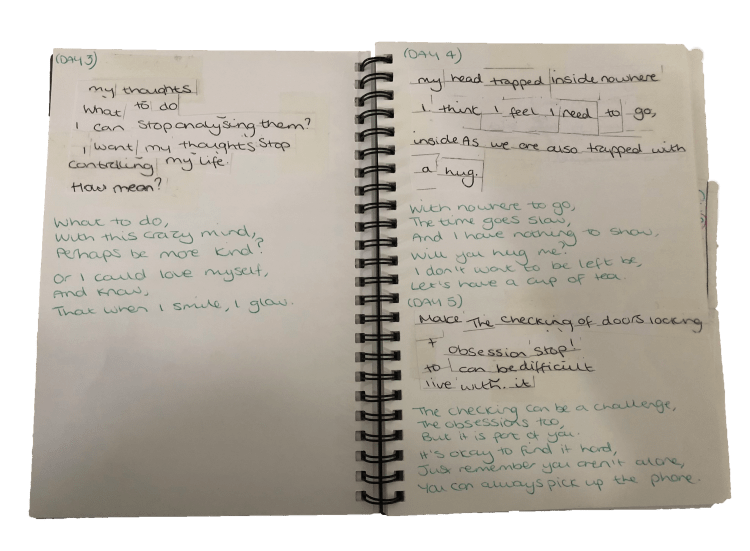 (DAY 3)
my thoughts
What to do
I can Stop analysing them?
I want my thoughts Stop
controlling my life
How mean?
What to do,
With this crazy mind,
Perhaps be more kind?
Or I could love myself,
And know,
That when I smile, I glow.
(DAY 4)
my head trapped inside nowhere
I think I feel I need to go,
inside As we are also trapped with
a hug.
With nowhere to go,
The time goes slow,
And I have nothing to show,
Will you hug me?
I don't want to be left be,
Let's have a cup of tea.
(DAY 5)
Make The checking of doors locking
+ obsession stop!
to can be difficult
live with it
The checking can be a challenge,
The obsessions too,
But it is part of you.
It's okay to find it hard,
Just remember you aren't alone,
You can always pick up the phone.